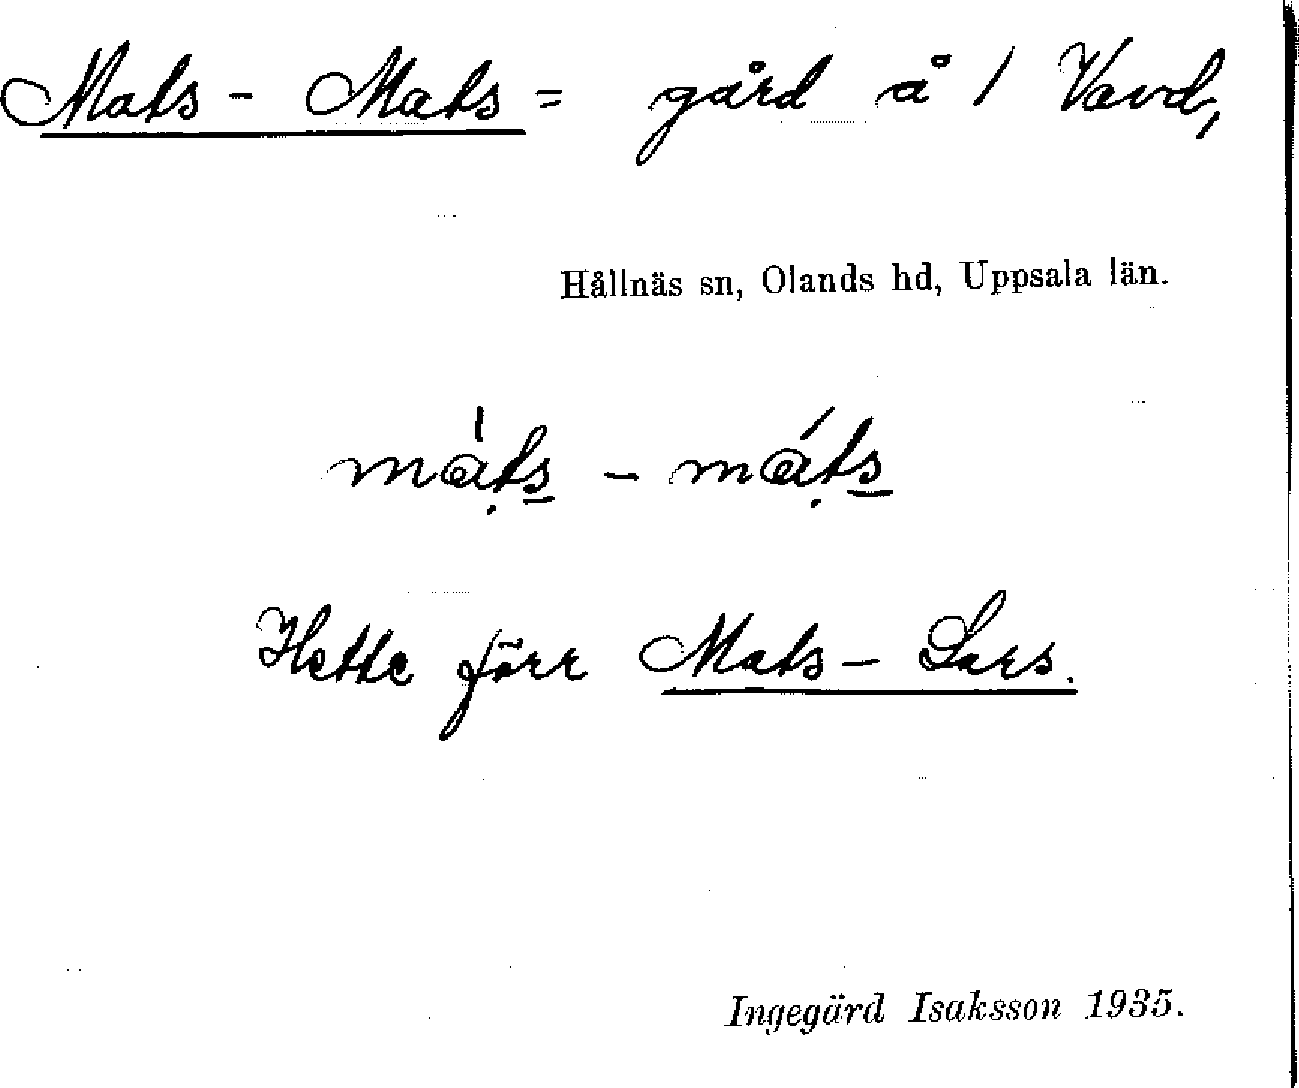 Mats - Mats = gård å 1 Vavd,
Hållnäs sn, Olands hd, Uppsala län.
mats - mats
Hette förr Mats - Lars.
Ingegärd Isaksson 1935.